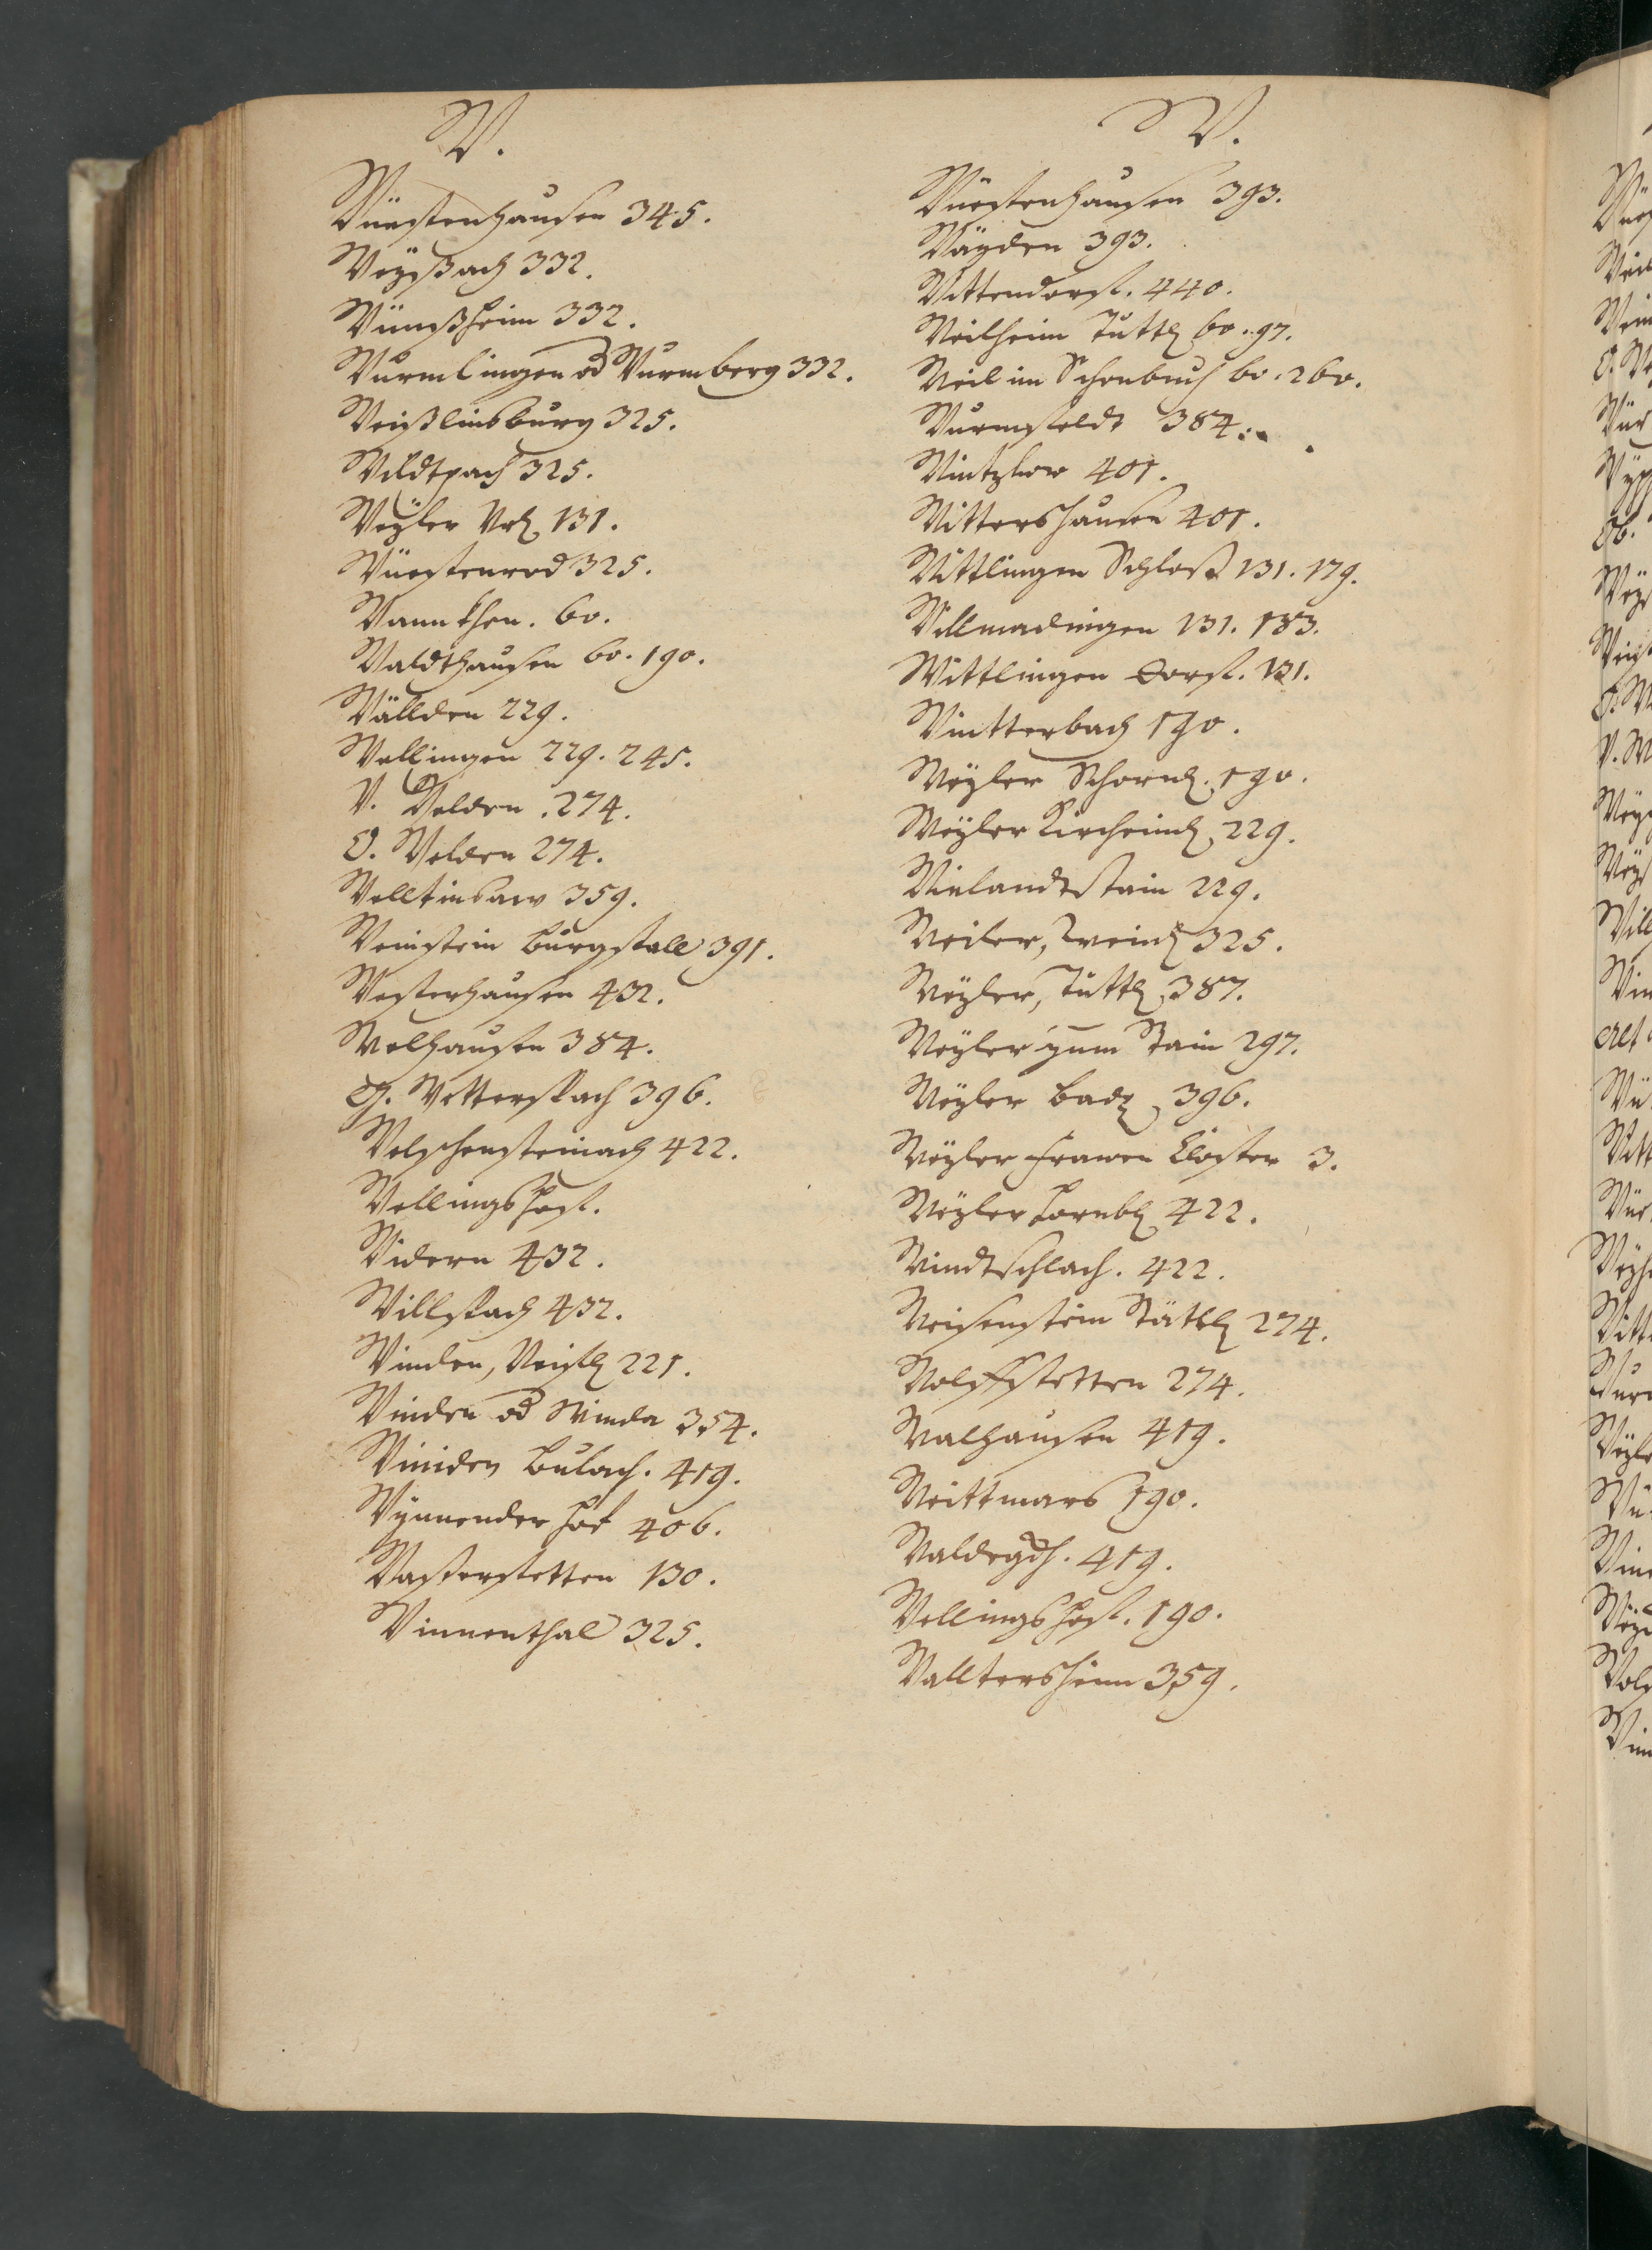 W.
Wüestenhausen 345.
Weyssach 332.
Wümßheim 332.
Wurmlingen od Wurmberg 332.
Weißlinsburg 325.
Wildtpach 325.
Weyler Vrl. 131.
Wüestenrod 325.
Wannthen. 60.
Waldthausen 60. 190.
Wällden 229.
Wellingen 229. 245.
V. Welden. 274.
O. Welden 274.
Welltinsaw 359.
Weinstein Burgstall 391.
Westerhausen 432.
Welhausen 384.
G. Wetterspach 396.
Welschensteinach 422.
Wellingshoff.
Widern 432.
Willspach 432.
Winden, 221.
Winden od Winda 354.
Winiden Bulach. 419.
Wynnender hof 406.
Wasserstetten 130.
Winnenthal 325.
W.
Wüestenhausen 393.
Wäyden 393.
Wittendorff. 440.
Weilheim Tuttl. 60. 97.
Weil im Schonbuch 60. 260.
Wurmsfeldt 384.
Wintzlow 401.
Wittershausen 401.
Wittlingen Schloss 131. 179.
Willmadingen 131. 183.
Wittlingen Dorff. 131.
Wintterbach 190.
Weyler Schornd. 190.
Weyler Kircheimb. 229.
Wielandtstain 229.
Weiler, Weinsp. 325.
Weyler, Tuttl. 387.
Weyler zum Stain 297.
Weyler Bad 396.
Weyler Frawen Closter 3.
Weyler Hornb. 422.
Windtschlach. 422.
Weissenstein Stättl. 274.
Wolffstetten 274.
Walhausen 419.
Weittmars 190.
Waldegch. 419.
Wellingshoff. 190.
Walltersheim 359.